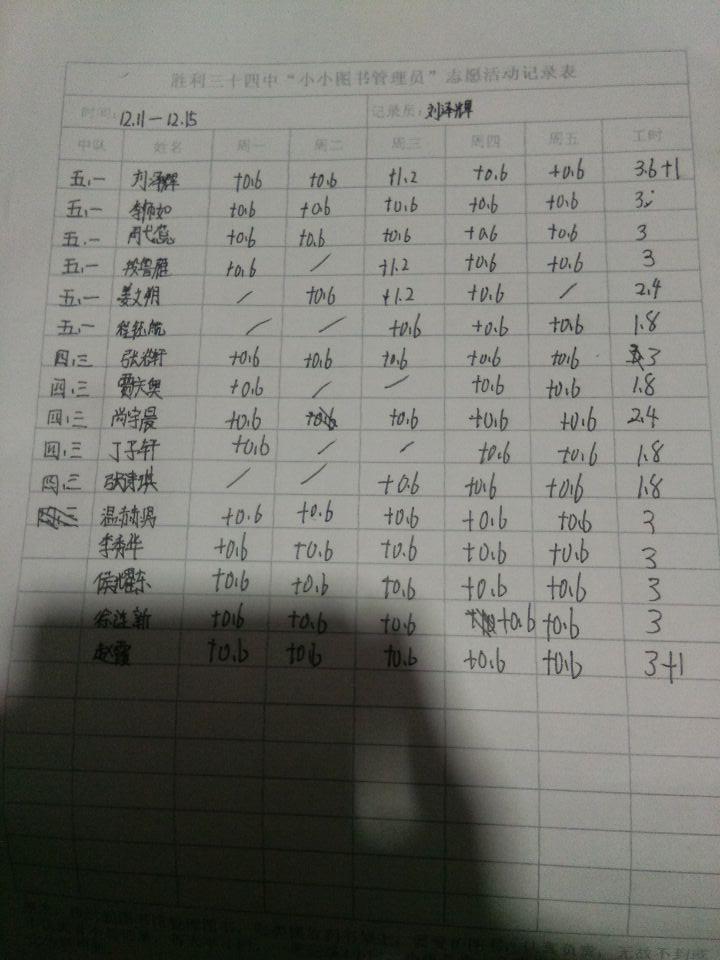 胜利三十四中“小小图书管理员”志愿活动记录表
时间:12.11—12.15 记录员:刘泽辉
中队 姓名 周一 周二 周三 周四 周五 工时
五,一 刘泽辉 +0.6 +0.6 +1.2 +0.6 +0.6 3.6+1
五,一 +0.6 +0.6 +0.6 +0.6 +0.6 3
五,一 +0.6 +0.6 +0.6 +0.6 +0.6 3
五,一 +0.6 / +1.2 +0.6 +0.6 3
五,一 姜文朔 / +0.6 +1.2 +0.6 / 2.4
五,一 程钰航 / / +0.6 +0.6 +0.6 1.8
四,三 +0.6 +0.6 +0.6 +0.6 +0.6 3
四,三 贾庆奥 +0.6 / / +0.6 +0.6 1.8
四,三 尚宇晨 +0.6 +0.6 +0.6 +0.6 2.4
四,三 丁子轩 +0.6 / / +0.6 +0.6 1.8
四,三 / / +0.6 +0.6 +0.6 1.8
+0.6 +0.6 +0.6 +0.6 +0.6 3
李秀华 +0.6 +0.6 +0.6 +0.6 +0.6 3
侯耀东 +0.6 +0.6 +0.6 +0.6 +0.6 3
徐连新 +0.6 +0.6 +0.6 +0.6 +0.6 3
赵霞 +0.6 +0.6 +0.6 +0.6 +0.6 3+1